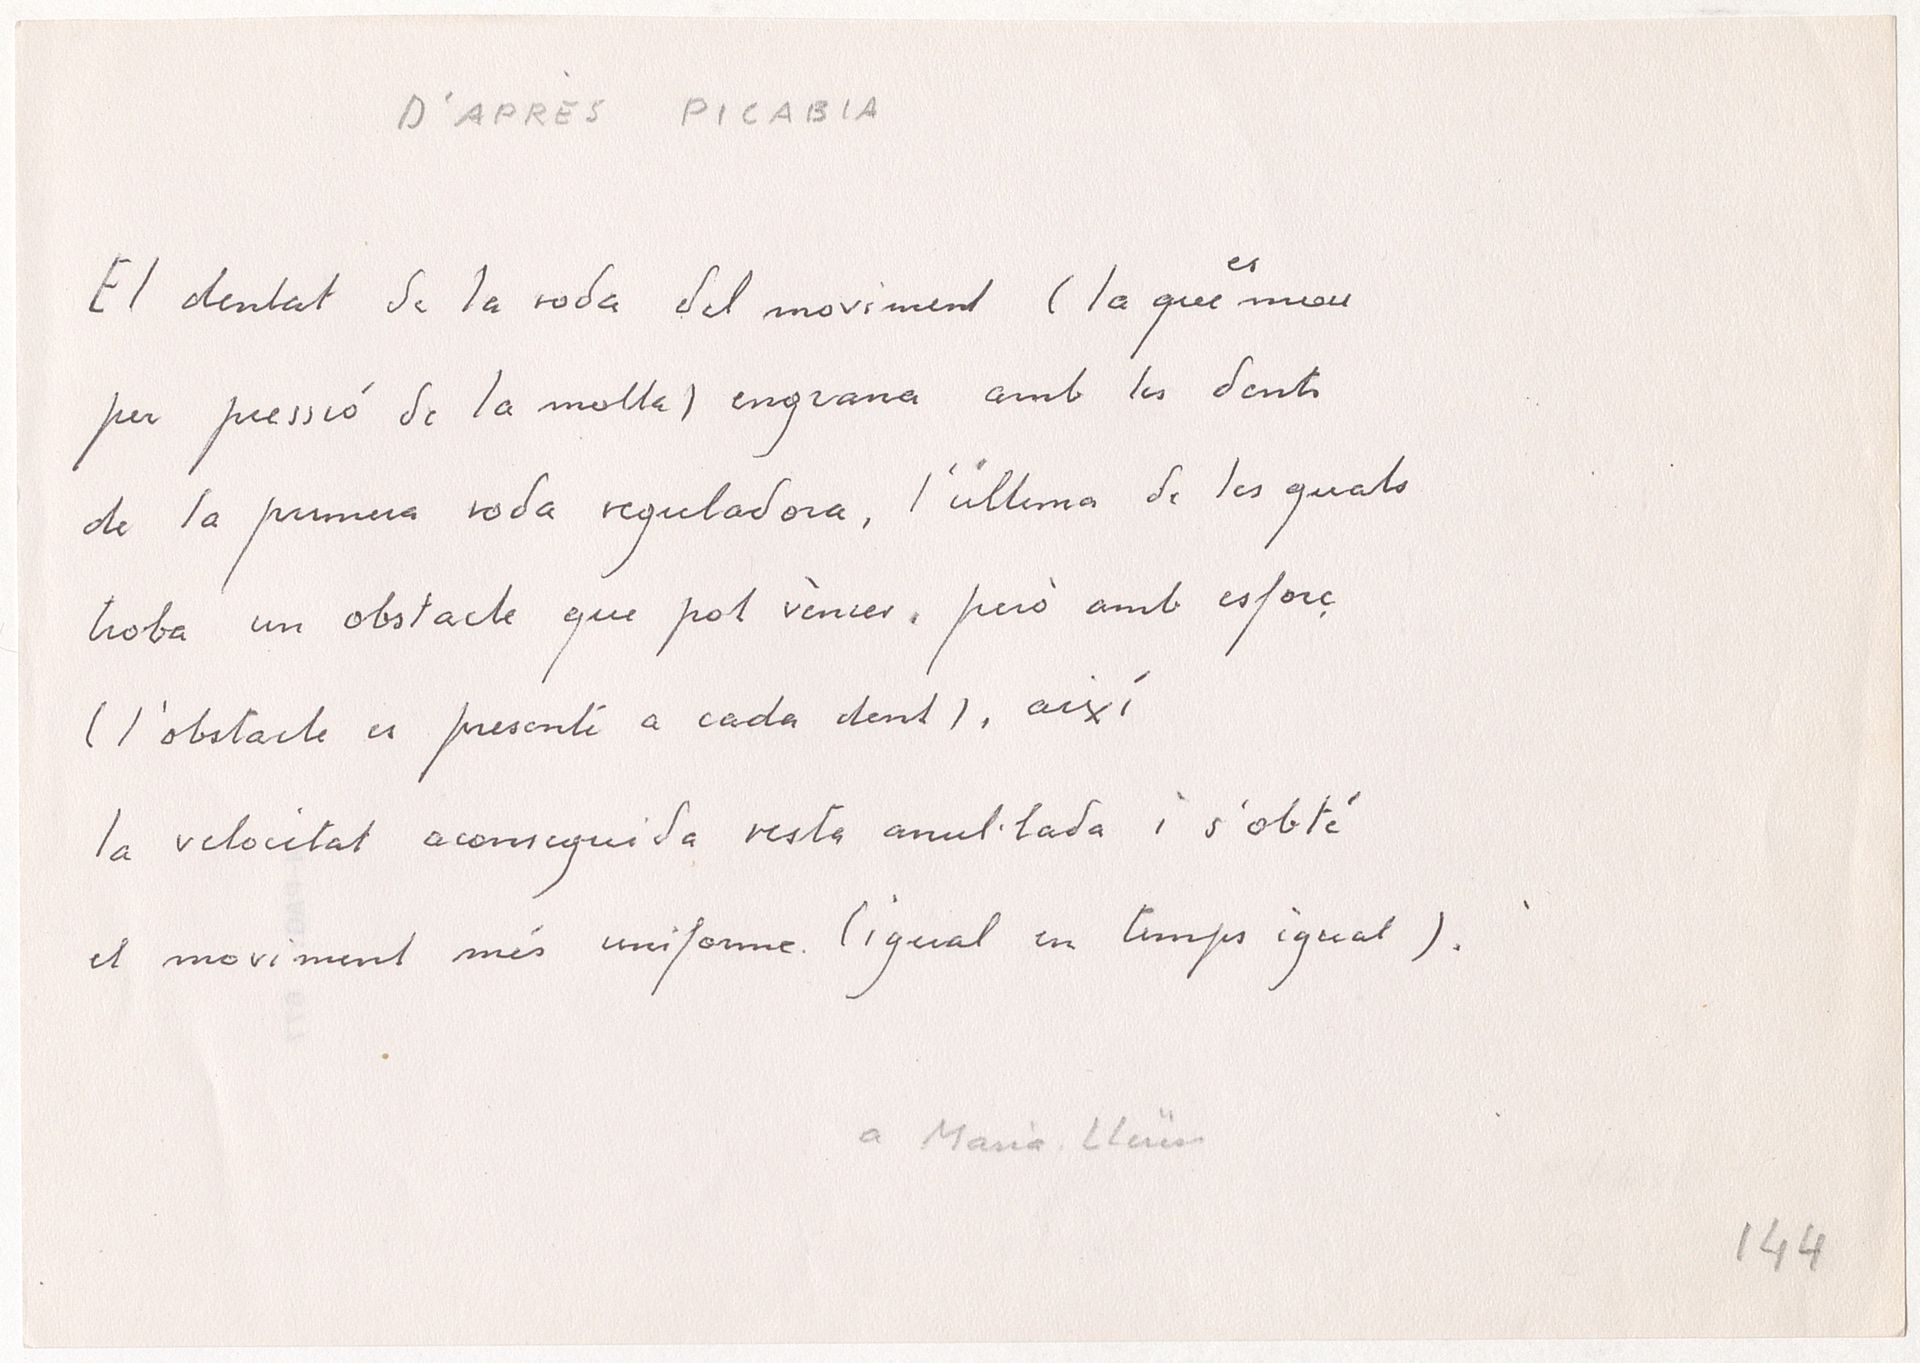 D'APRÈS PICABIA
El dentat de la roda del moviment (la que es mou
per pressió de la molla) engrana amb les dents
de la primera roda reguladora, l'última de les quals
troba un obstacle que pot vèncer, però amb esforç
(l'obstacle es presenta a cada dent), així
la velocitat aconseguida resta anul·lada i s'obté
el moviment més uniforme. (igual en temps igual).
a Maria Lluïsa
144